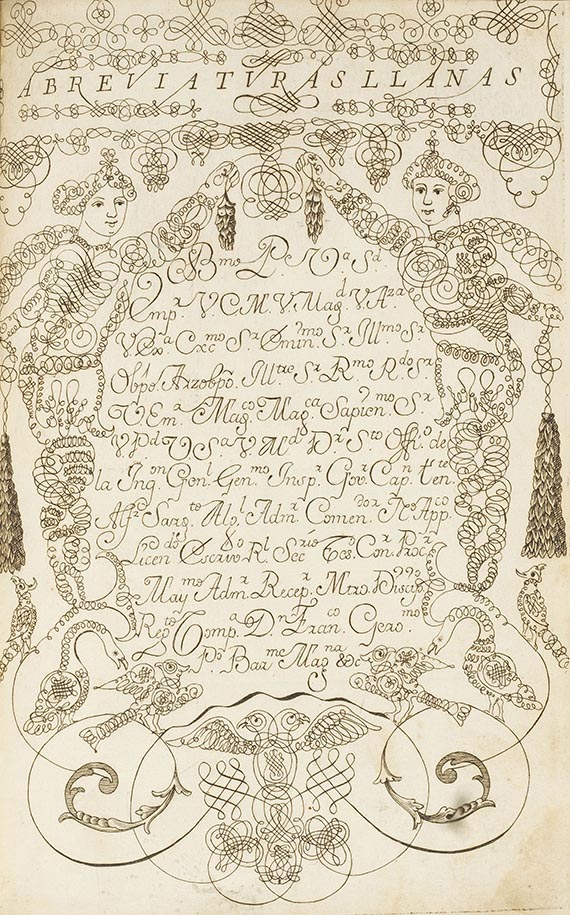 ABREVIATURAS LLANAS
B.mo P. V.a S.d
Emp.r V. C. M. V. Mag.d V. A.za
V. Ex.a Exc.mo S.r Emin.mo S.r Ill.mo S.r
Obpo. Arzobpo. Ill.tre S.r R.mo R.do S.r
V. Em.a Mag.co Mag.ca Sapien.mo S.r
V. P.d V. S.a V. M.d D.r S.to Offi.o de
la Inq.on Gen.l Gen.mo Insp.r Gov.r Cap.n tte
Alf.z Sarg.to Adm.r Comen.dor App.co
Licen.do R.l Sec.rio Con.r Proc.r
May.mo Adm.r Recep.r Mtro.
Comp.a D.n Fran.co Gero.mo
P.o Bar.me Mag.na &c